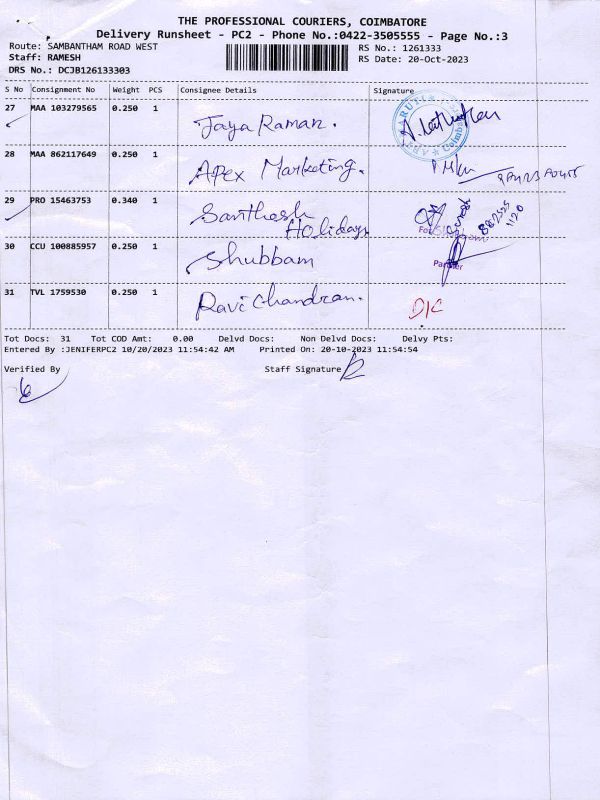 THE PROFESSIONAL COURIERS, COIMBATORE
Delivery Runsheet - PC2 - Phone No.:0422-3505555 - Page No.:3
Route: SAMBANTHAM ROAD WEST RS No.: 1261333
Staff: RAMESH RS Date: 20-Oct-2023
DRS No.: DCJB126133303
S No Consignment No Weight PCS Consignee Details Signature
27 MAA 103279565 0.250 1 Jaya Raman.
28 MAA 862117649 0.250 1 Apex Marketing.
29 PRO 15463753 0.340 1 Santhosh Holidays
30 CCU 100885957 0.250 1 Shubbam
Partner
31 TVL 1759530 0.250 1 Ravi Chandran. D/C
Tot Docs: 31 Tot COD Amt: 0.00 Delvd Docs: Non Delvd Docs: Delvy Pts:
Entered By :JENIFERPC2 10/20/2023 11:54:42 AM Printed On: 20-10-2023 11:54:54
Verified By Staff Signature